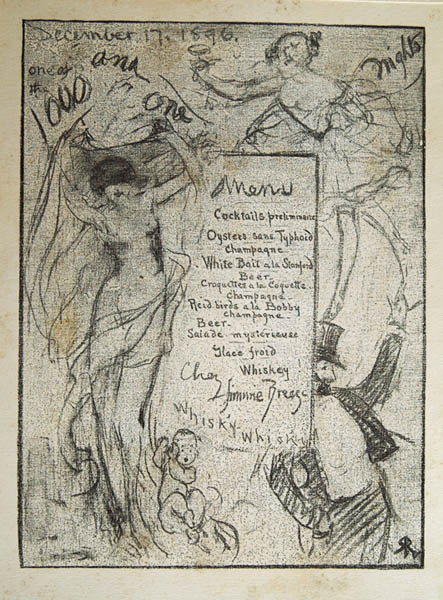 December 17, 1896.
one of the 1000 and one nights
Menu
Cocktails preliminaire
Oysters sans Typhoid
Champagne
White Bait a la Stanford
Beer
Croquettes a la Coquette
Champagne
Reid birds a la Bobby
Champagne
Beer.
Salade mystérieuse
Glace froid
Whiskey
Chez Jimmie Breese
Whisky
Whisky